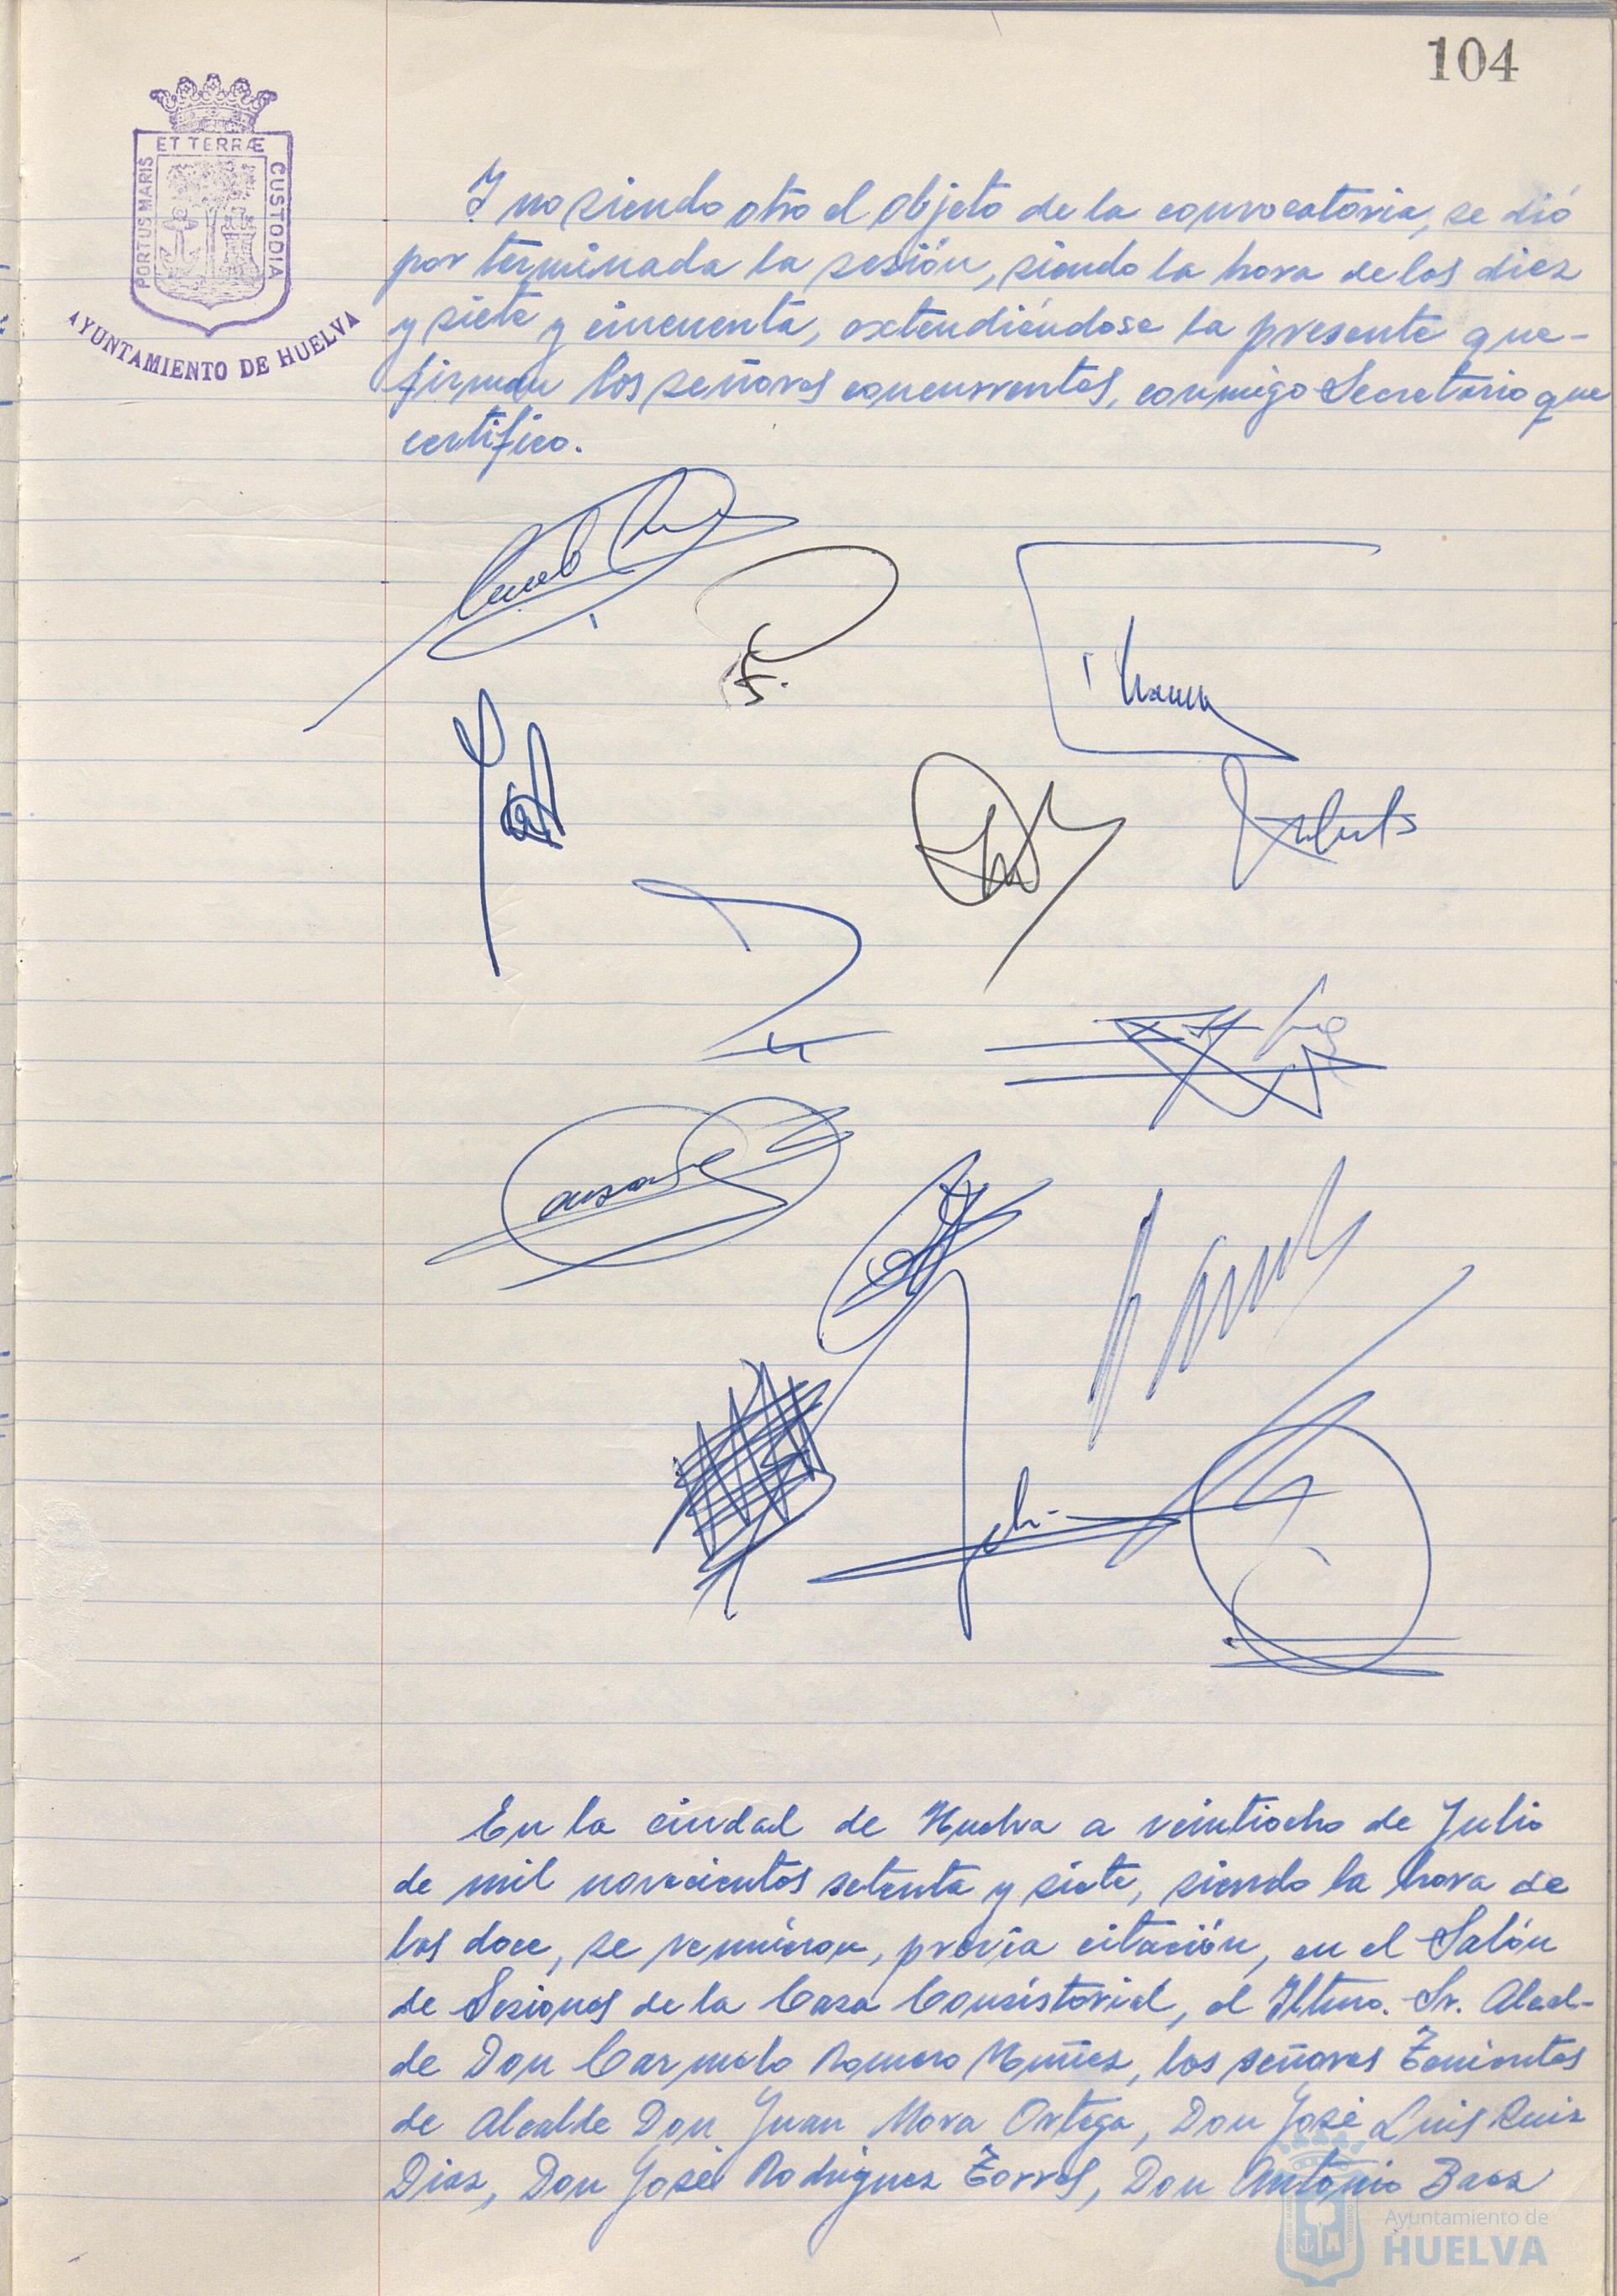 104
ET TERRÆ
PORTUS MARIS
CUSTODIA
AYUNTAMIENTO DE HUELVA
Y no siendo otro el objeto de la convocatoria, se dió
por terminada la sesión, siendo la hora de las diez
y siete y cincuenta, extendiéndose la presente que-
firman los señores concurrentes, conmigo Secretario que
certifico.
En la ciudad de Huelva a veintiocho de Julio
de mil novecientos setenta y siete, siendo la hora de
las doce, se reunieron, previa citación, en el Salón
de Sesiones de la Casa Consistorial, el Iltmo. Sr. Alcal-
de Don Carmelo Romero Muñez, los señores Tenientes
de Alcalde Don Juan Mora Ortega, Don José Luis Ruiz
Diaz, Don José Rodriguez Torres, Don Antonio Baez
Ayuntamiento de
HUELVA